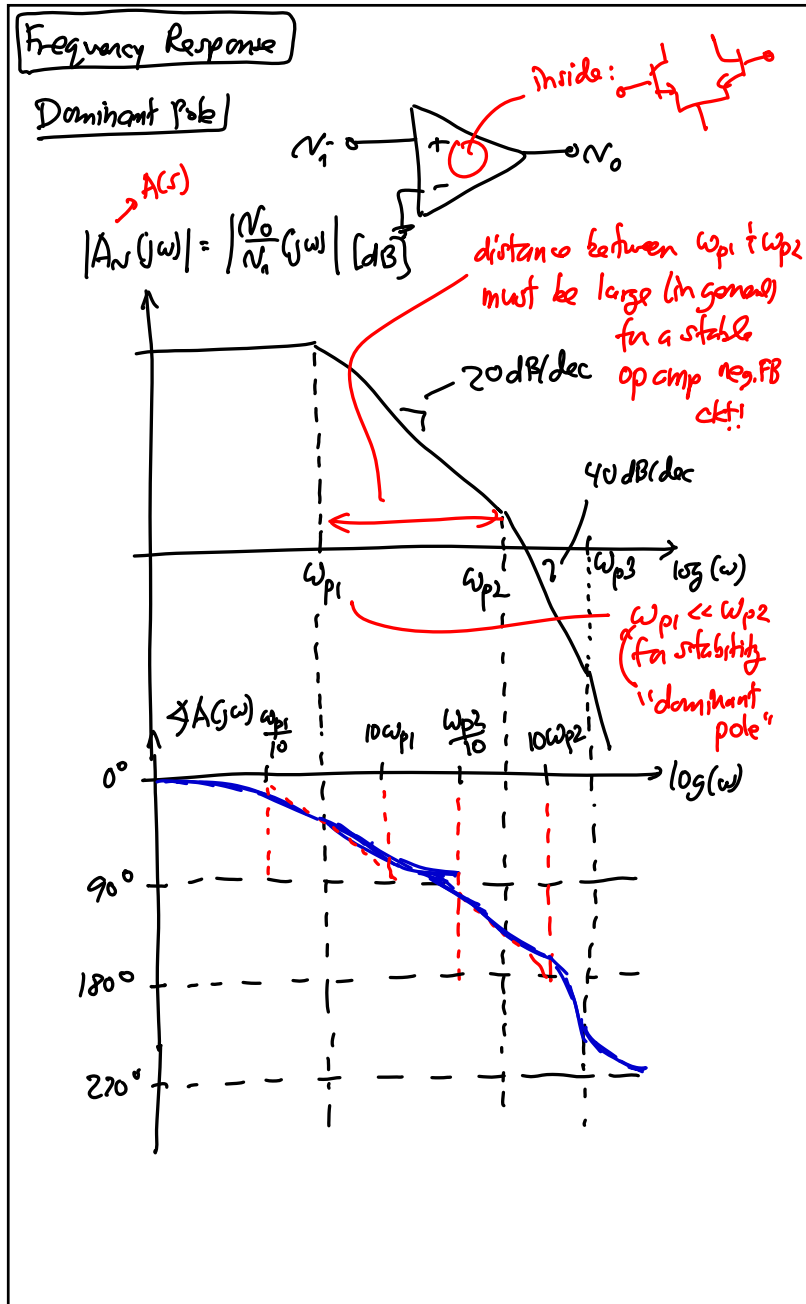 Frequency Response
inside:
Dominant Pole
+
-
N₁
N₀
A(s)
|A_N(jω)| = |N₀/N₁ (jω)| [dB]
distance between ω_p1 & ω_p2
must be large (in general)
for a stable
op amp neg. FB
ckt!!
20dB/dec
40dB/dec
ω_p1
ω_p2
ω_p3
log(ω)
ω_p1 << ω_p2
for stability
"dominant
pole"
∢A(jω)
ω_p1/10
10ω_p1
ω_p2/10
10ω_p2
log(ω)
0°
90°
180°
270°